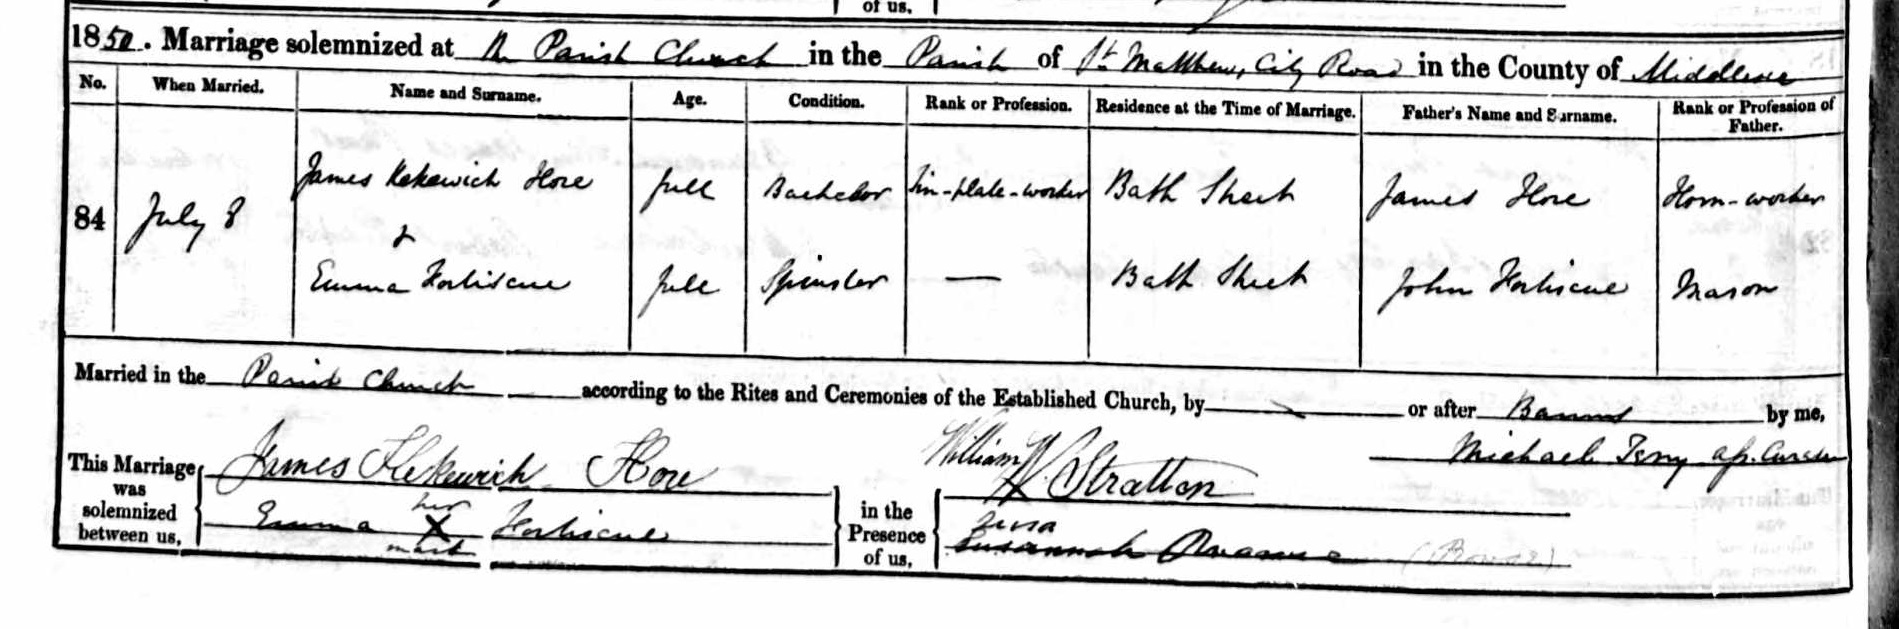 of us,
1850. Marriage solemnized at the Parish Church in the Parish of St Matthew, City Road in the County of Middlesex
No. When Married. Name and Surname. Age. Condition. Rank or Profession. Residence at the Time of Marriage. Father's Name and Surname. Rank or Profession of Father.
84 July 8 James Kekewich Hore full Bachelor Tin-plate-worker Bath Street James Hore Horn-worker
&
Emma Fortiscue full Spinster — Bath Street John Fortiscue Mason
Married in the Parish Church according to the Rites and Ceremonies of the Established Church, by or after Banns by me,
Michael Terry
This Marriage was solemnized between us,
James Kekewich Hore
Emma X Fortiscue
her
mark
in the Presence of us,
William Stratton
Susannah